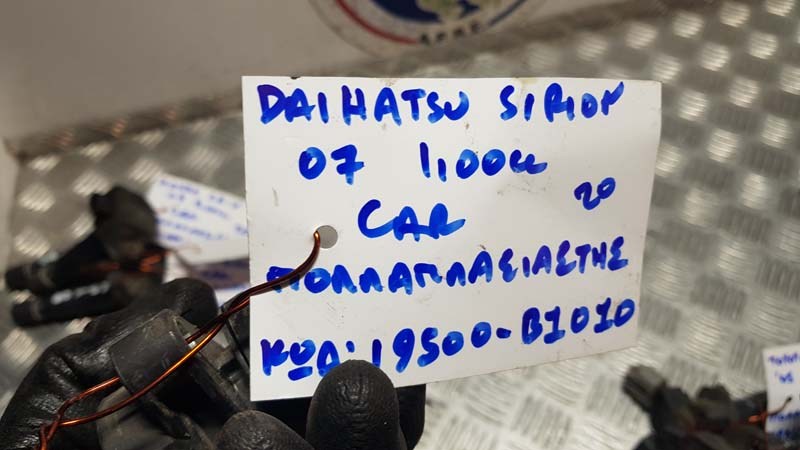 DAIHATSU SIRION
07 1,00cc
20
CAR
ΠΟΛΛΑΠΛΑΣΙΑΣΤΗΣ
ΚΩΔ: 19500-B1010